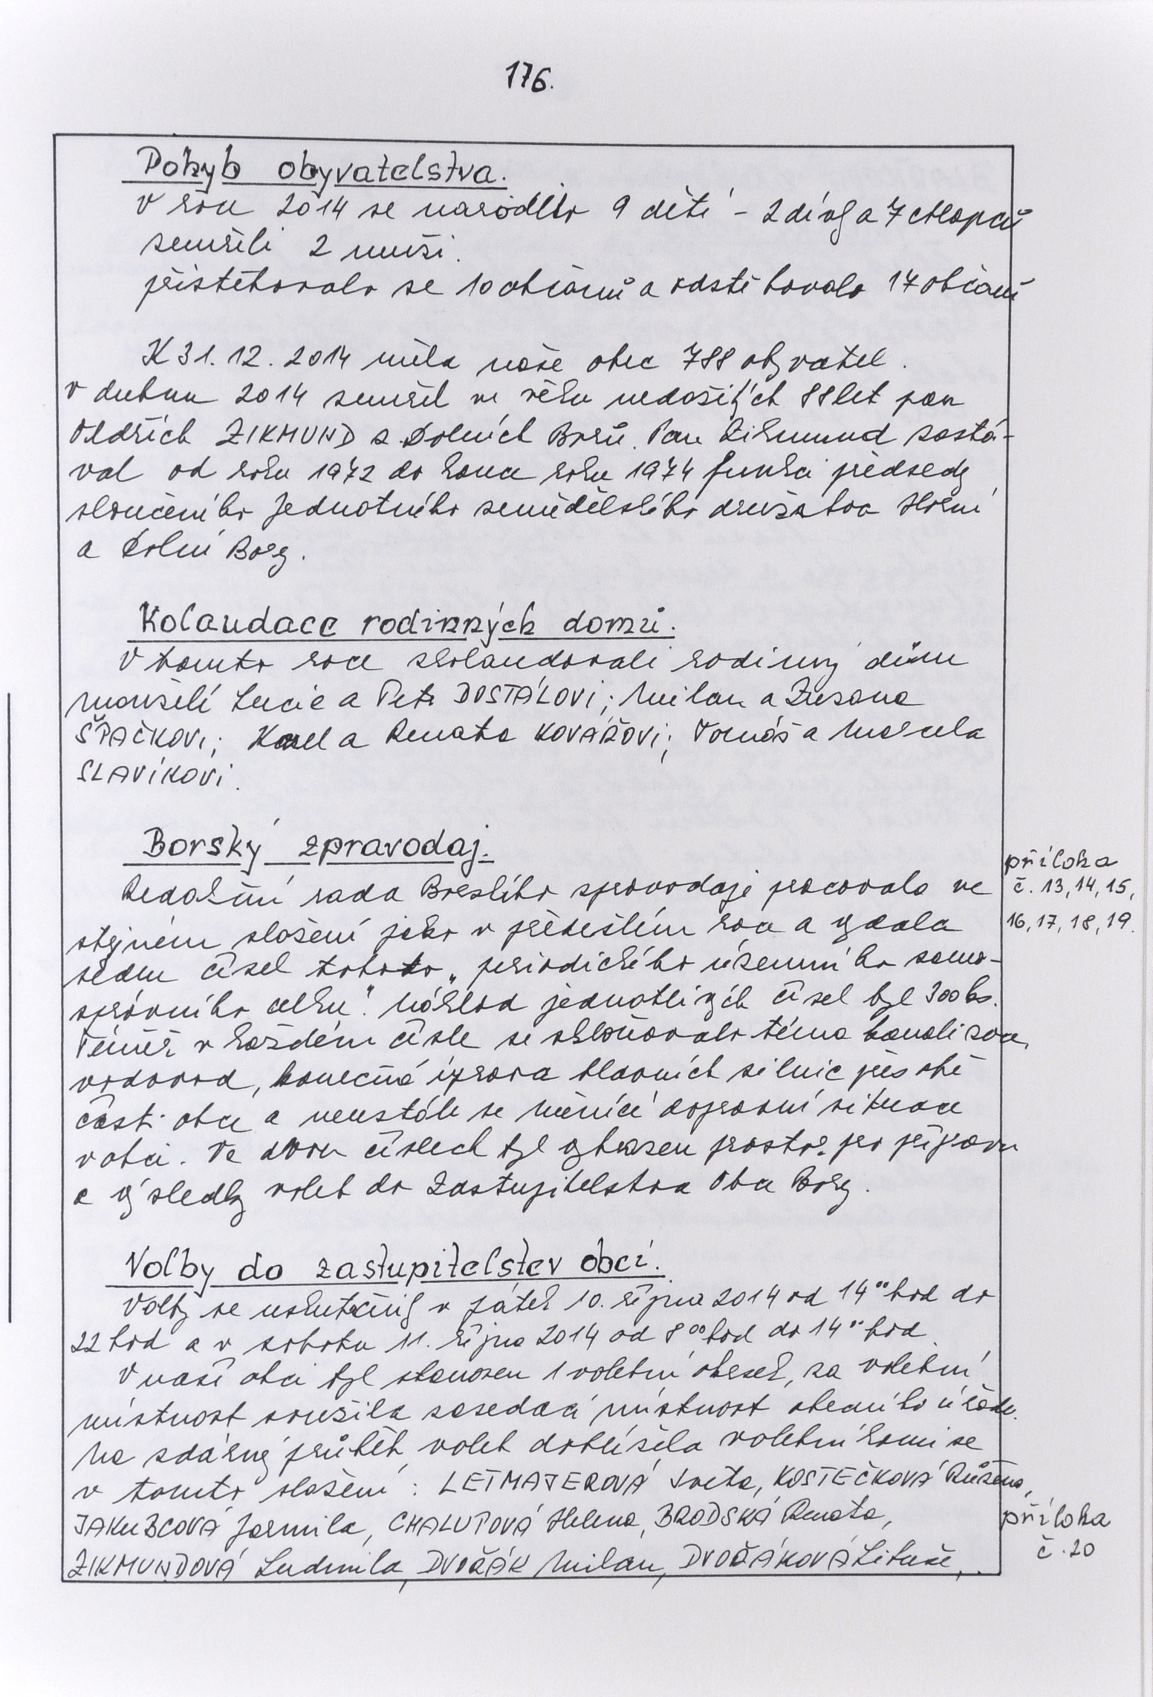 176.
Pohyb obyvatelstva.
V roce 2014 se narodilo 9 dětí - 2 dívky a 7 chlapců
zemřeli 2 muži.
přistěhovalo se 10 občanů a odstěhovalo 17 občanů
K 31.12.2014 měla naše obec 788 obyvatel.
V dubnu 2014 zemřel ve věku nedožitých 88 let pan
Oldřich ZIKMUND z Dolních Borů. Pan Zikmund zastá-
val od roku 1972 do konce roku 1974 funkci předsedy
sloučeného Jednotného zemědělského družstva Horní
a Dolní Bory.
Kolaudace rodinných domů.
V tomto roce zkolaudovali rodinný dům
manželé Lucie a Petr DOSTÁLOVI; Milan a Zuzana
ŠPAČKOVI; Karel a Renata KOVÁŘOVI; Tomáš a Marcela
SLAVÍKOVI.
Borský zpravodaj.
Redakční rada Borského zpravodaje pracovala ve
stejném složení jako v předešlém roce a vydala
sedm čísel tohoto „periodického územního samo-
správního celku". Náklad jednotlivých čísel byl 300 ks.
Téměř v každém čísle se skloňovalo téma kanalizace,
vodovod, konečná úprava hlavních silnic přes obě
části obce a neustále se měnící dopravní situace
v obci. Ve dvou číslech byl vyhrazen prostor pro přípravu
a výsledky voleb do Zastupitelstva Obce Bory.
příloha
č. 13, 14, 15,
16, 17, 18, 19.
Volby do zastupitelstev obcí.
Volby se uskutečnily v pátek 10. října 2014 od 14°° hod do
22 hod a v sobotu 11. října 2014 od 8°° hod do 14°° hod.
V naší obci byl stanoven 1 volební okrsek, za volební
místnost sloužila zasedací místnost obecního úřadu.
Na zdárný průběh voleb dohlížela volební komise
v tomto složení: LETMAJEROVÁ Iveta, KOSTEČKOVÁ Růžena,
JAKUBCOVÁ Jarmila, CHALUPOVÁ Helena, BRODSKÁ Renata,
ZIKMUNDOVÁ Ludmila, DVOŘÁK Milan, DVOŘÁKOVÁ Libuše,
příloha
č. 20